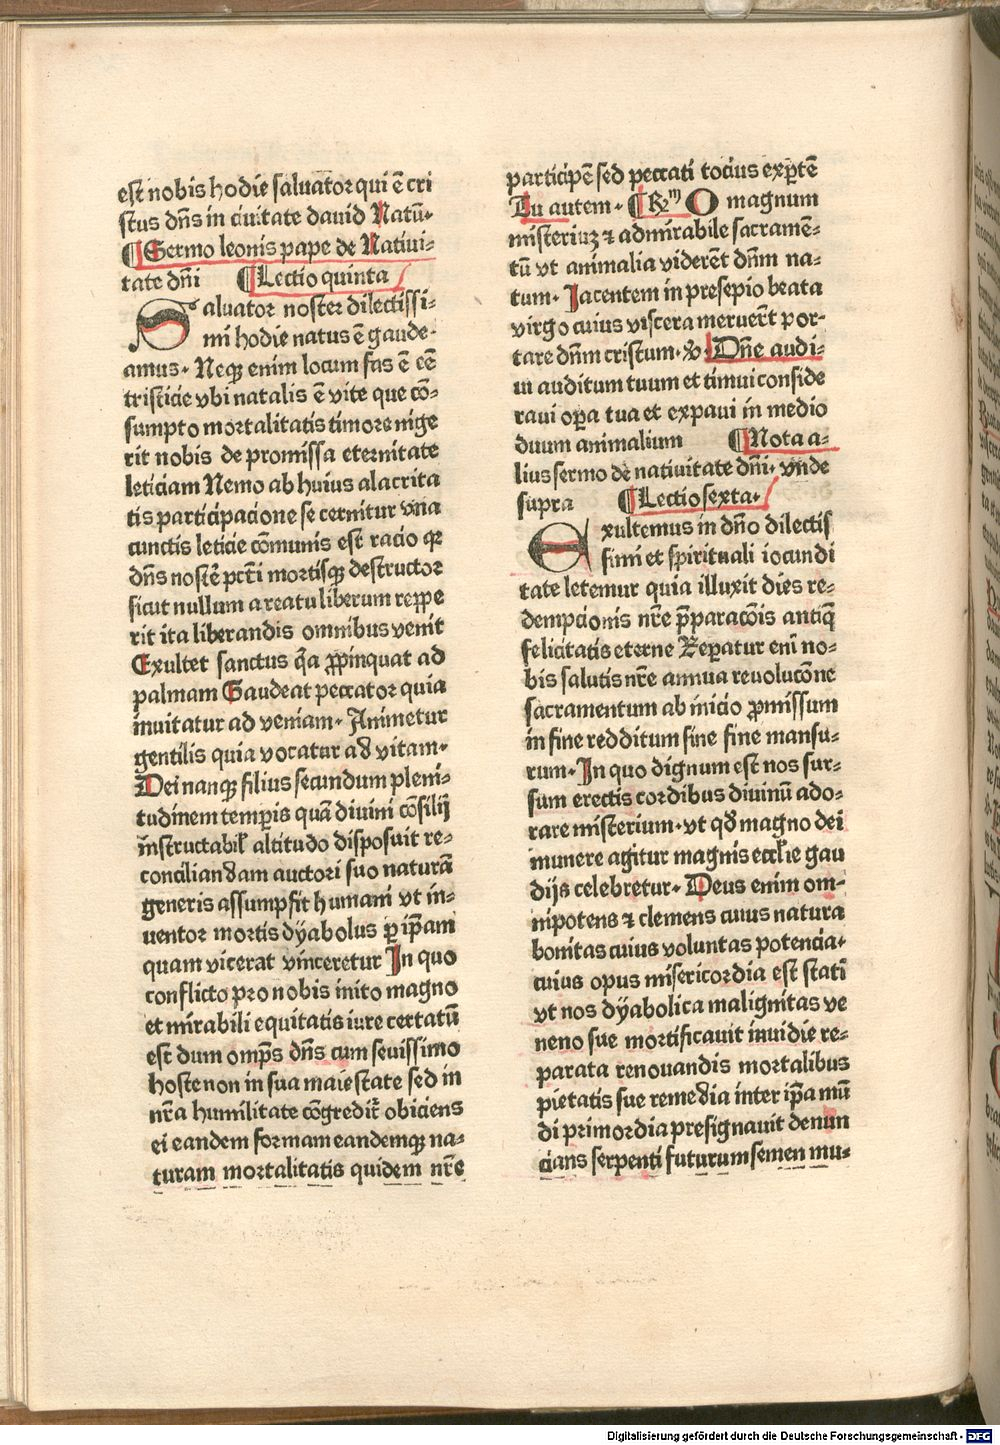 est nobis hodie saluator qui ē cri
stus dn̄s in ciuitate dauid Natū.
¶Sermo leonis pape de Natiui-
tate dn̄i ¶Lectio quinta
Saluator noster dilectissi-
mi hodie natus ē gaude-
amus. Neqꝫ enim locum fas ē eē
tristicie vbi natalis ē vite que cō-
sumpto mortalitatis timore nige
rit nobis de promissa eternitate
leticiam Nemo ab huius alacrita
tis participacione se cernitur vna
cunctis leticie cōmunis est racio qꝛ
dn̄s nostē pctī mortisqꝫ destructor
sicut nullum a reatu liberum repꝑe
rit ita liberandis omnibus venit
Exultet sanctus q̄a ꝓpinquat ad
palmam Gaudeat peccator quia
inuitatur ad veniam. Animetur
gentilis quia vocatur ad vitam.
Dei nanqꝫ filius secundum pleni-
tudinem temꝑis quā diuini cōsilij
īnstructabilꝰ altitudo disposuit re-
conciliandam auctori suo naturā
generis assumpsit humani vt in-
uentor mortis dyabolus ꝑ ip̄am
quam vicerat vinceretur In quo
conflicto pro nobis inito magno
et mirabili equitatis iure certatū
est dum omp̄s dn̄s cum seuissimo
hoste non in sua maiestate sed in
nr̄a humilitate cōgredit᷑ obiciens
ei eandem formam eandemqꝫ na-
turam mortalitatis quidem nr̄e
participē sed peccati tocius exꝑtē
Tu autem. ¶Rm̄ O magnum
misteriuꝫ ⁊ admirabile sacramē-
tū vt animalia viderēt dn̄m na-
tum. Jacentem in presepio beata
virgo cuius viscera meruer̄t por-
tare dn̄m cristum. ℣. Dn̄e audi-
ui auditum tuum et timui conside
raui oꝑa tua et expaui in medio
duum animalium ¶Nota a-
lius sermo de natiuitate dn̄i. vnde
supra ¶Lectio sexta.
Exultemus in dn̄o dilectis
simi et spirituali iocundi
tate letemur quia illuxit dies re-
dempcionis nr̄e p̄paracōis antiq̄
felicitatis eterne Reꝑatur enī no-
bis salutis nr̄e annua reuolucōne
sacramentum ab inicio ꝓmissum
in fine redditum sine fine mansu-
rum. In quo dignum est nos sur-
sum erectis cordibus diuinū ado-
rare misterium. vt qd̄ magno dei
munere agitur magnis eccl̄ie gau
dijs celebretur. Deus enim om-
nipotens ⁊ clemens cuius natura
bonitas cuius voluntas potencia.
cuius opus misericordia est statī
vt nos dyabolica malignitas ve
neno sue mortificauit inuidie re-
parata renouandis mortalibus
pietatis sue remedia inter ip̄a mū
di primordia presignauit denun
cians serpenti futurum semen mu-
Digitalisierung gefördert durch die Deutsche Forschungsgemeinschaft - DFG